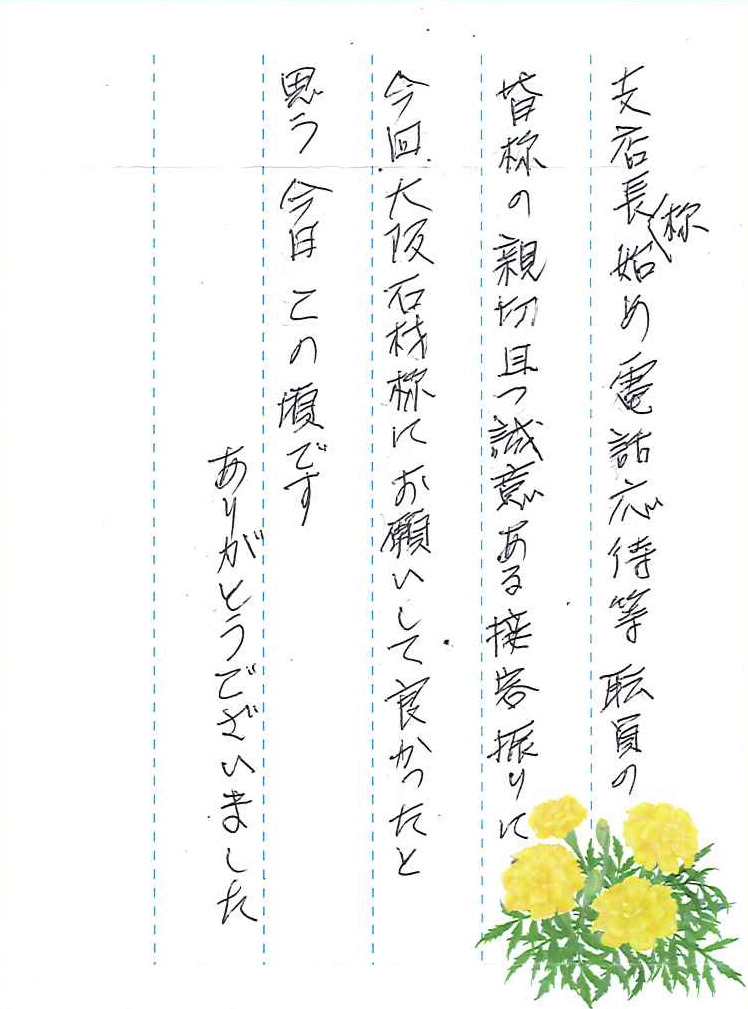 支店長様始め電話応待等職員の
皆様の親切且つ誠意ある接客振りに
今回大阪石材様にお願いして良かったと
思う今日この頃です
ありがとうございました